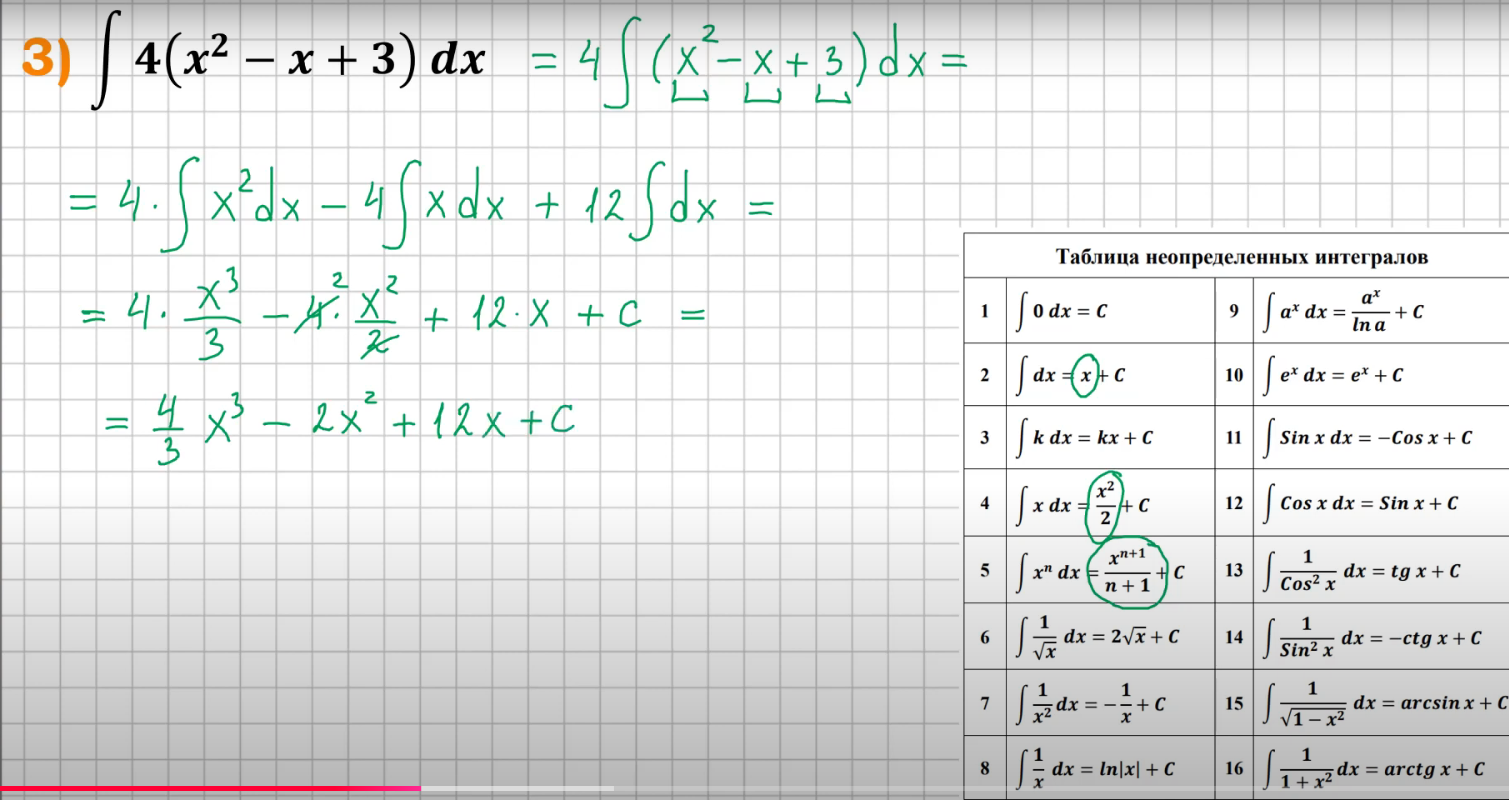 3) ∫ 4(x² − x + 3) dx = 4 ∫ (x² − x + 3) dx =
= 4 · ∫ x² dx − 4 ∫ x dx + 12 ∫ dx =
= 4 · x³/3 − 4² · x²/2 + 12 · x + C =
= 4/3 x³ − 2x² + 12x + C
Таблица неопределенных интегралов
1 ∫ 0 dx = C 9 ∫ aˣ dx = aˣ/ln a + C
2 ∫ dx = x + C 10 ∫ eˣ dx = eˣ + C
3 ∫ k dx = kx + C 11 ∫ Sin x dx = −Cos x + C
4 ∫ x dx = x²/2 + C 12 ∫ Cos x dx = Sin x + C
5 ∫ xⁿ dx = xⁿ⁺¹/(n + 1) + C 13 ∫ 1/Cos² x dx = tg x + C
6 ∫ 1/√x dx = 2√x + C 14 ∫ 1/Sin² x dx = −ctg x + C
7 ∫ 1/x² dx = −1/x + C 15 ∫ 1/√(1 − x²) dx = arcsin x + C
8 ∫ 1/x dx = ln|x| + C 16 ∫ 1/(1 + x²) dx = arctg x + C